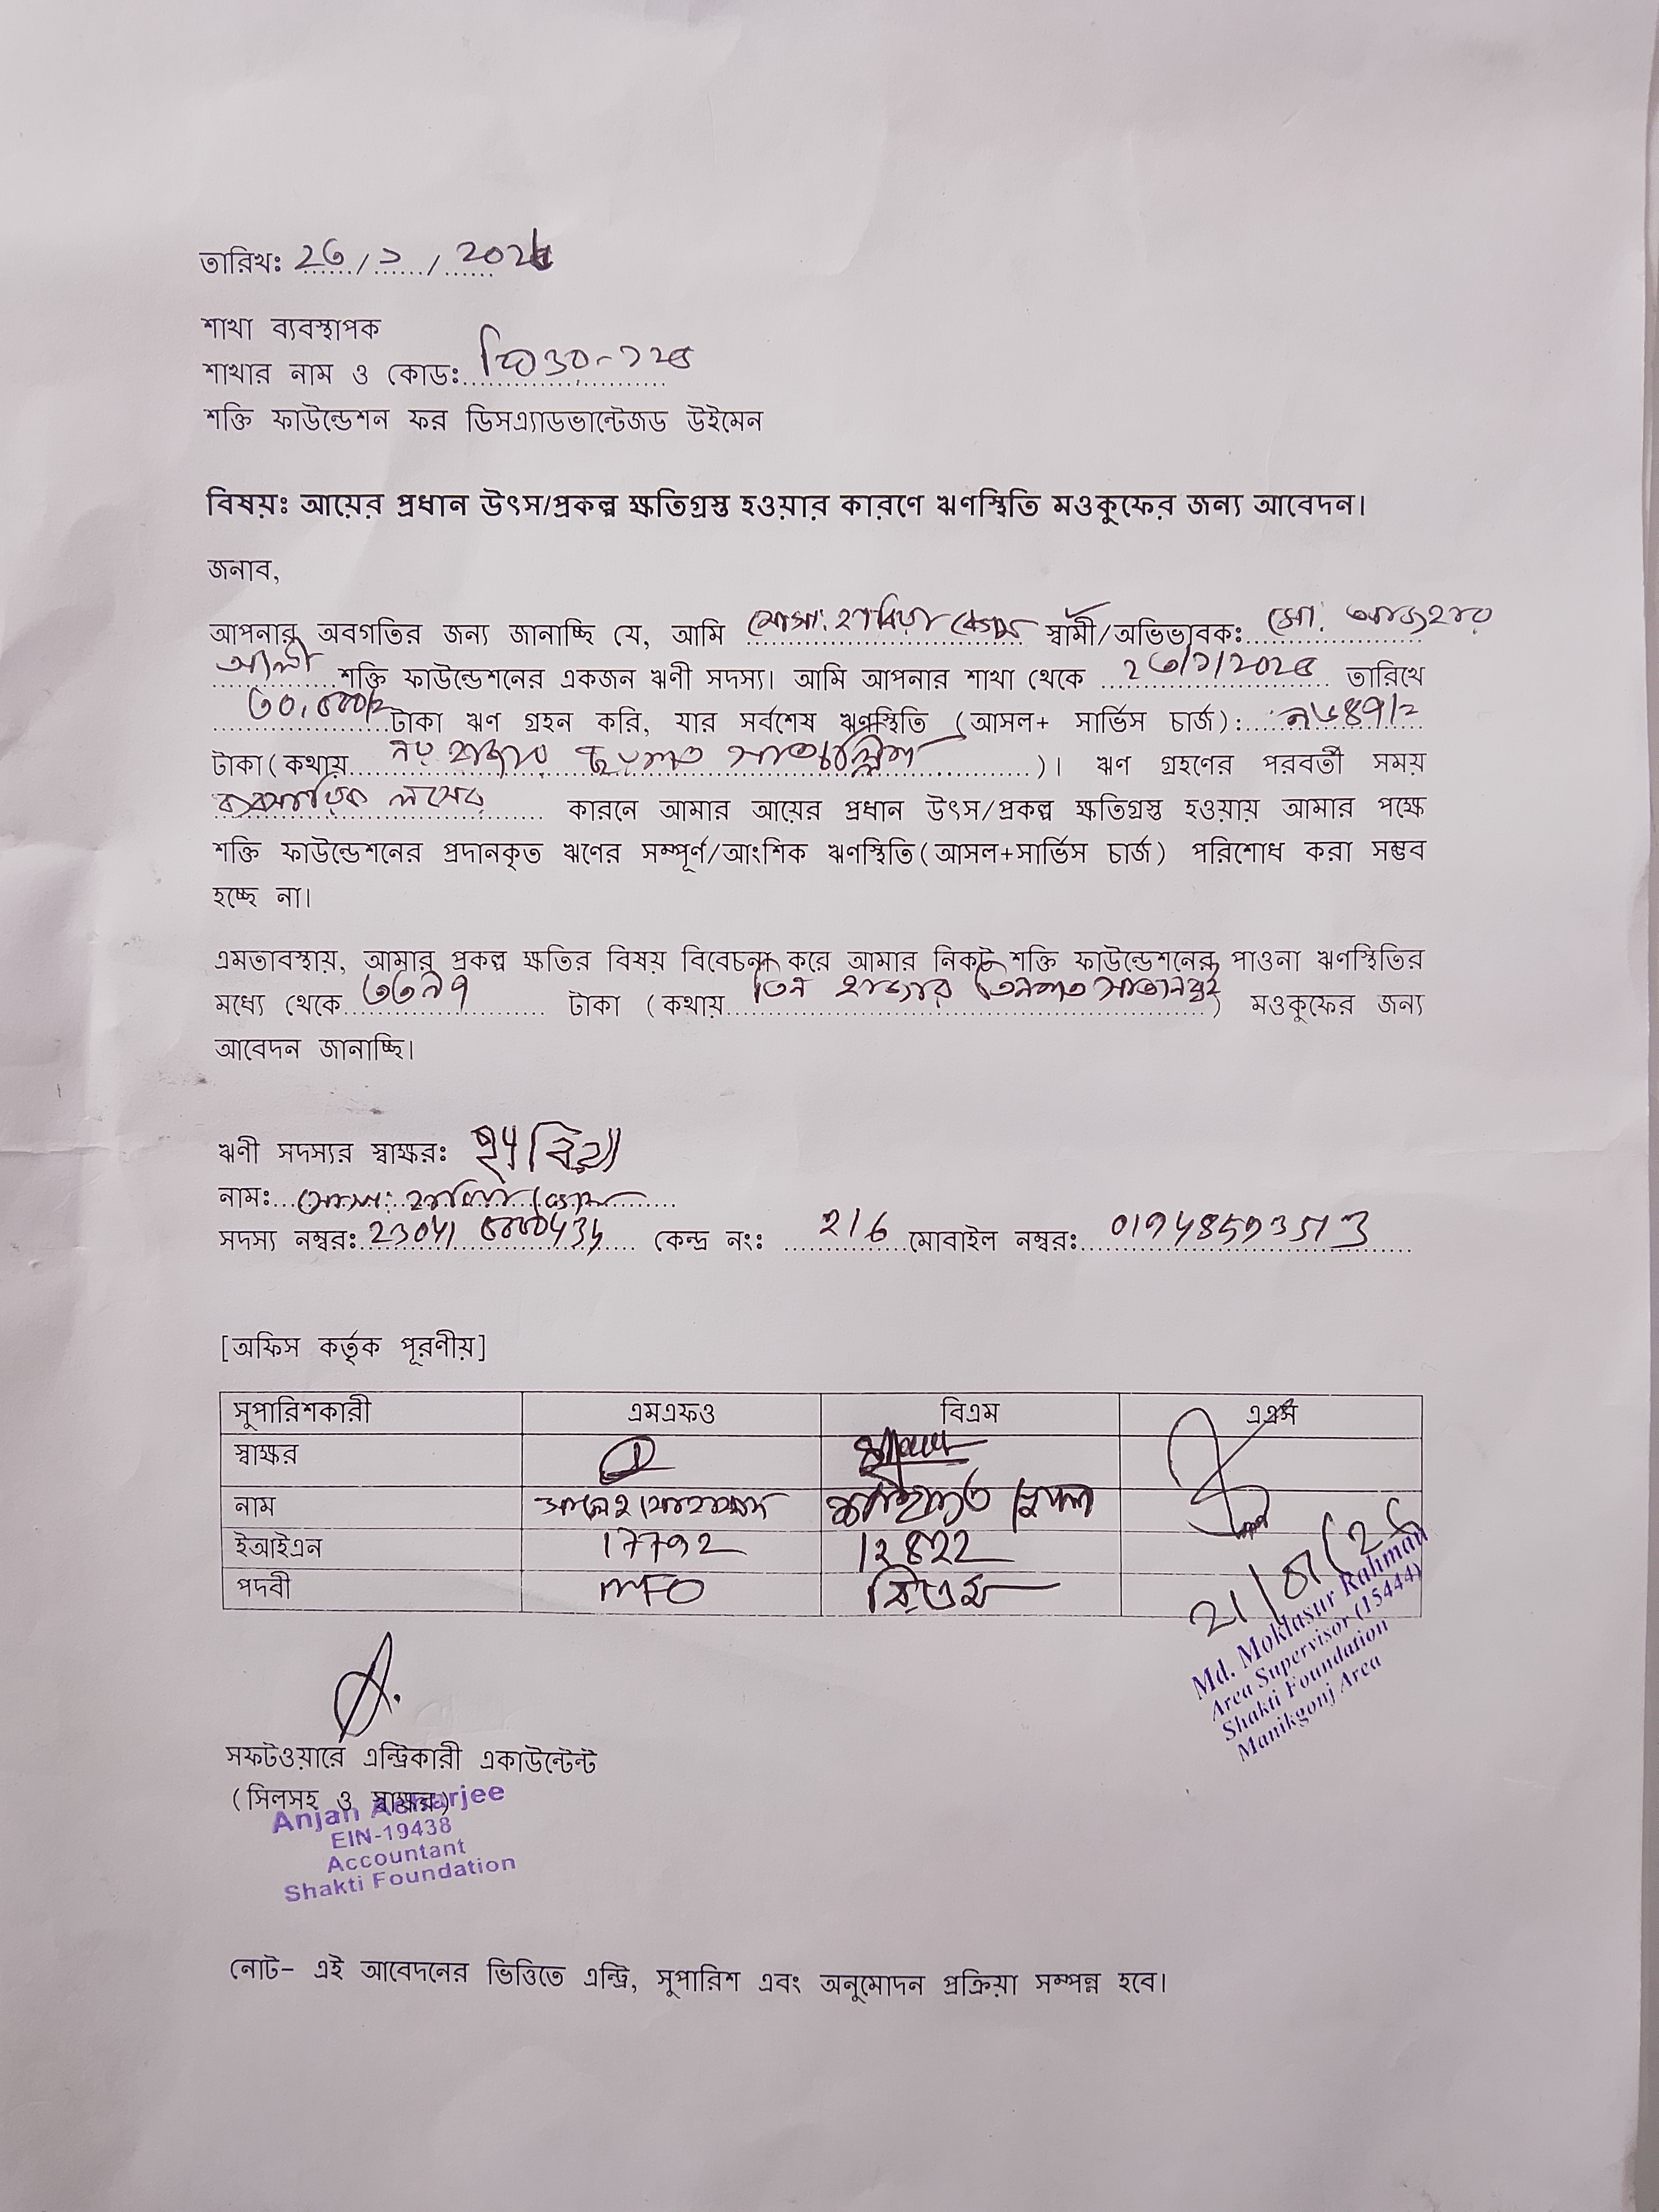 তারিখঃ ২৬/১/২০২৬
শাখা ব্যবস্থাপক
শাখার নাম ও কোডঃ
শক্তি ফাউন্ডেশন ফর ডিসএ্যাডভান্টেজড উইমেন
বিষয়ঃ আয়ের প্রধান উৎস/প্রকল্প ক্ষতিগ্রস্ত হওয়ার কারণে ঋণস্থিতি মওকুফের জন্য আবেদন।
জনাব,
আপনার অবগতির জন্য জানাচ্ছি যে, আমি মোসা: হাবিয়া বেগম স্বামী/অভিভাবক: মো:
আলী শক্তি ফাউন্ডেশনের একজন ঋণী সদস্য। আমি আপনার শাখা থেকে তারিখে
৩০,০০০/= টাকা ঋণ গ্রহন করি, যার সর্বশেষ ঋণস্থিতি (আসল+ সার্ভিস চার্জ): ৯৬৪৭/=
টাকা(কথায় নয় হাজার ছয়শত সাতচল্লিশ)। ঋণ গ্রহণের পরবর্তী সময়
ব্যবসায়িক লসের কারনে আমার আয়ের প্রধান উৎস/প্রকল্প ক্ষতিগ্রস্ত হওয়ায় আমার পক্ষে
শক্তি ফাউন্ডেশনের প্রদানকৃত ঋণের সম্পূর্ণ/আংশিক ঋণস্থিতি(আসল+সার্ভিস চার্জ) পরিশোধ করা সম্ভব
হচ্ছে না।
এমতাবস্থায়, আমার প্রকল্প ক্ষতির বিষয় বিবেচনা করে আমার নিকট শক্তি ফাউন্ডেশনের পাওনা ঋণস্থিতির
মধ্যে থেকে ৩৩৯৭ টাকা (কথায় তিন হাজার তিনশত সাতানব্বই) মওকুফের জন্য
আবেদন জানাচ্ছি।
ঋণী সদস্যর স্বাক্ষরঃ
নামঃ মোসা: হাবিয়া বেগম
সদস্য নম্বরঃ কেন্দ্র নংঃ 216 মোবাইল নম্বরঃ
[অফিস কর্তৃক পূরণীয়]
সুপারিশকারী এমএফও বিএম এএস
স্বাক্ষর
নাম
ইআইএন 17792 12822
পদবী MFO বিএম
21/01/26
Md. Moktasur Rahman
Area Supervisor (15444)
Shakti Foundation
Manikgonj Area
সফটওয়ারে এন্ট্রিকারী একাউন্টেন্ট
(সিলসহ ও স্বাক্ষর)
Anjan Acharjee
EIN-19438
Accountant
Shakti Foundation
নোট- এই আবেদনের ভিত্তিতে এন্ট্রি, সুপারিশ এবং অনুমোদন প্রক্রিয়া সম্পন্ন হবে।